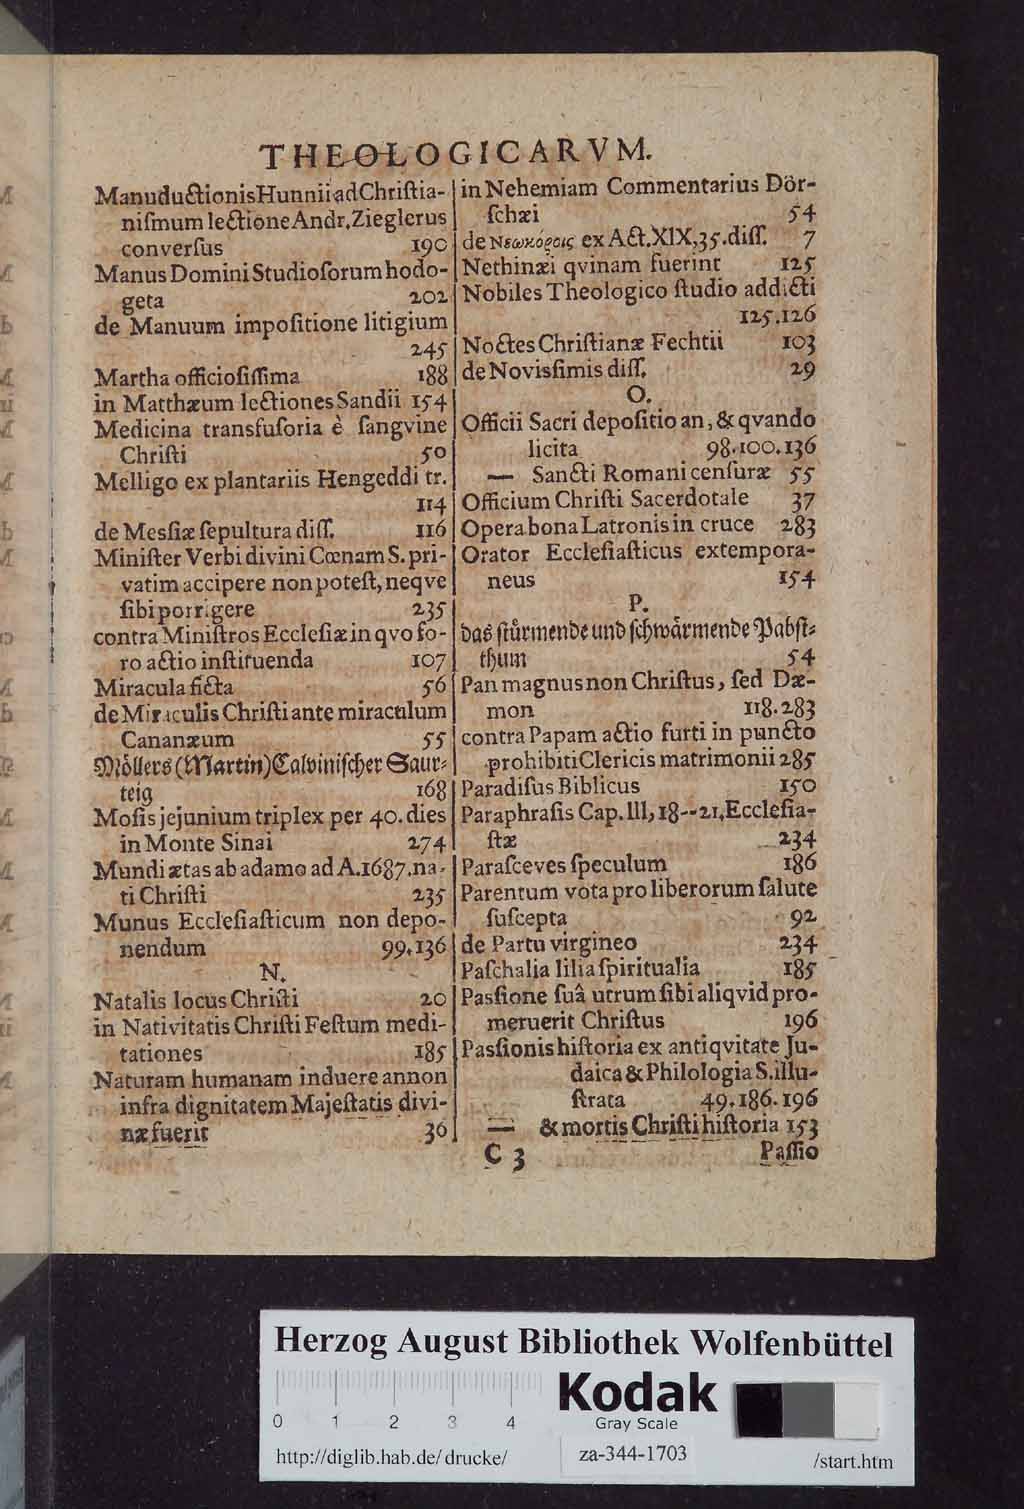 THEOLOGICARVM.
Manuductionis Hunnii ad Chriſtia-
niſmum lectione Andr. Zieglerus
converſus 190
Manus Domini Studioſorum hodo-
geta 202
de Manuum impoſitione litigium
245
Martha officioſiſſima 188
in Matthæum lectiones Sandii 154
Medicina transfuſoria è ſangvine
Chriſti 50
Melligo ex plantariis Hengeddi tr.
114
de Mesſiæ ſepultura diſſ. 116
Miniſter Verbi divini Cœnam S. pri-
vatim accipere non poteſt, neqve
ſibi porrigere 235
contra Miniſtros Eccleſiæ in qvo fo-
ro actio inſtituenda 107
Miracula ficta 56
de Miraculis Chriſti ante miraculum
Cananæum 55
Möllers (Martin) Calviniſcher Saur-
teig 168
Moſis jejunium triplex per 40. dies
in Monte Sinai 274
Mundi ætas ab adamo ad A. 1687. na-
ti Chriſti 235
Munus Eccleſiaſticum non depo-
nendum 99.136
N.
Natalis locus Chriſti 20
in Nativitatis Chriſti Feſtum medi-
tationes 185
Naturam humanam induere annon
infra dignitatem Majeſtatis divi-
næ fuerit 36
in Nehemiam Commentarius Dör-
ſchæi 54
de Νεωκόροις ex Act. XIX, 35. diſſ. 7
Nethinæi qvinam fuerint 125
Nobiles Theologico ſtudio addicti
125.126
Noctes Chriſtianæ Fechtii 103
de Novisſimis diſſ. 29
O.
Officii Sacri depoſitio an, & qvando
licita 98.100.136
— Sancti Romani cenſuræ 55
Officium Chriſti Sacerdotale 37
Opera bona Latronis in cruce 283
Orator Eccleſiaſticus extempora-
neus 154
P.
das ſtürmende und ſchwärmende Pabſt-
thum 54
Pan magnus non Chriſtus, ſed Dæ-
mon 118.283
contra Papam actio furti in puncto
prohibiti Clericis matrimonii 285
Paradiſus Biblicus 150
Paraphraſis Cap. III, 18--21, Eccleſia-
ſtæ 234
Paraſceves ſpeculum 186
Parentum vota pro liberorum ſalute
ſuſcepta 92
de Partu virgineo 234
Paſchalia lilia ſpiritualia 185
Pasſione ſuâ utrum ſibi aliqvid pro-
meruerit Chriſtus 196
Pasſionis hiſtoria ex antiqvitate Ju-
daica & Philologia S. illu-
ſtrata 49.186.196
— & mortis Chriſti hiſtoria 153
C 3 Paſſio
Herzog August Bibliothek Wolfenbüttel
0 1 2 3 4
Kodak
Gray Scale
http://diglib.hab.de/drucke/ za-344-1703 /start.htm